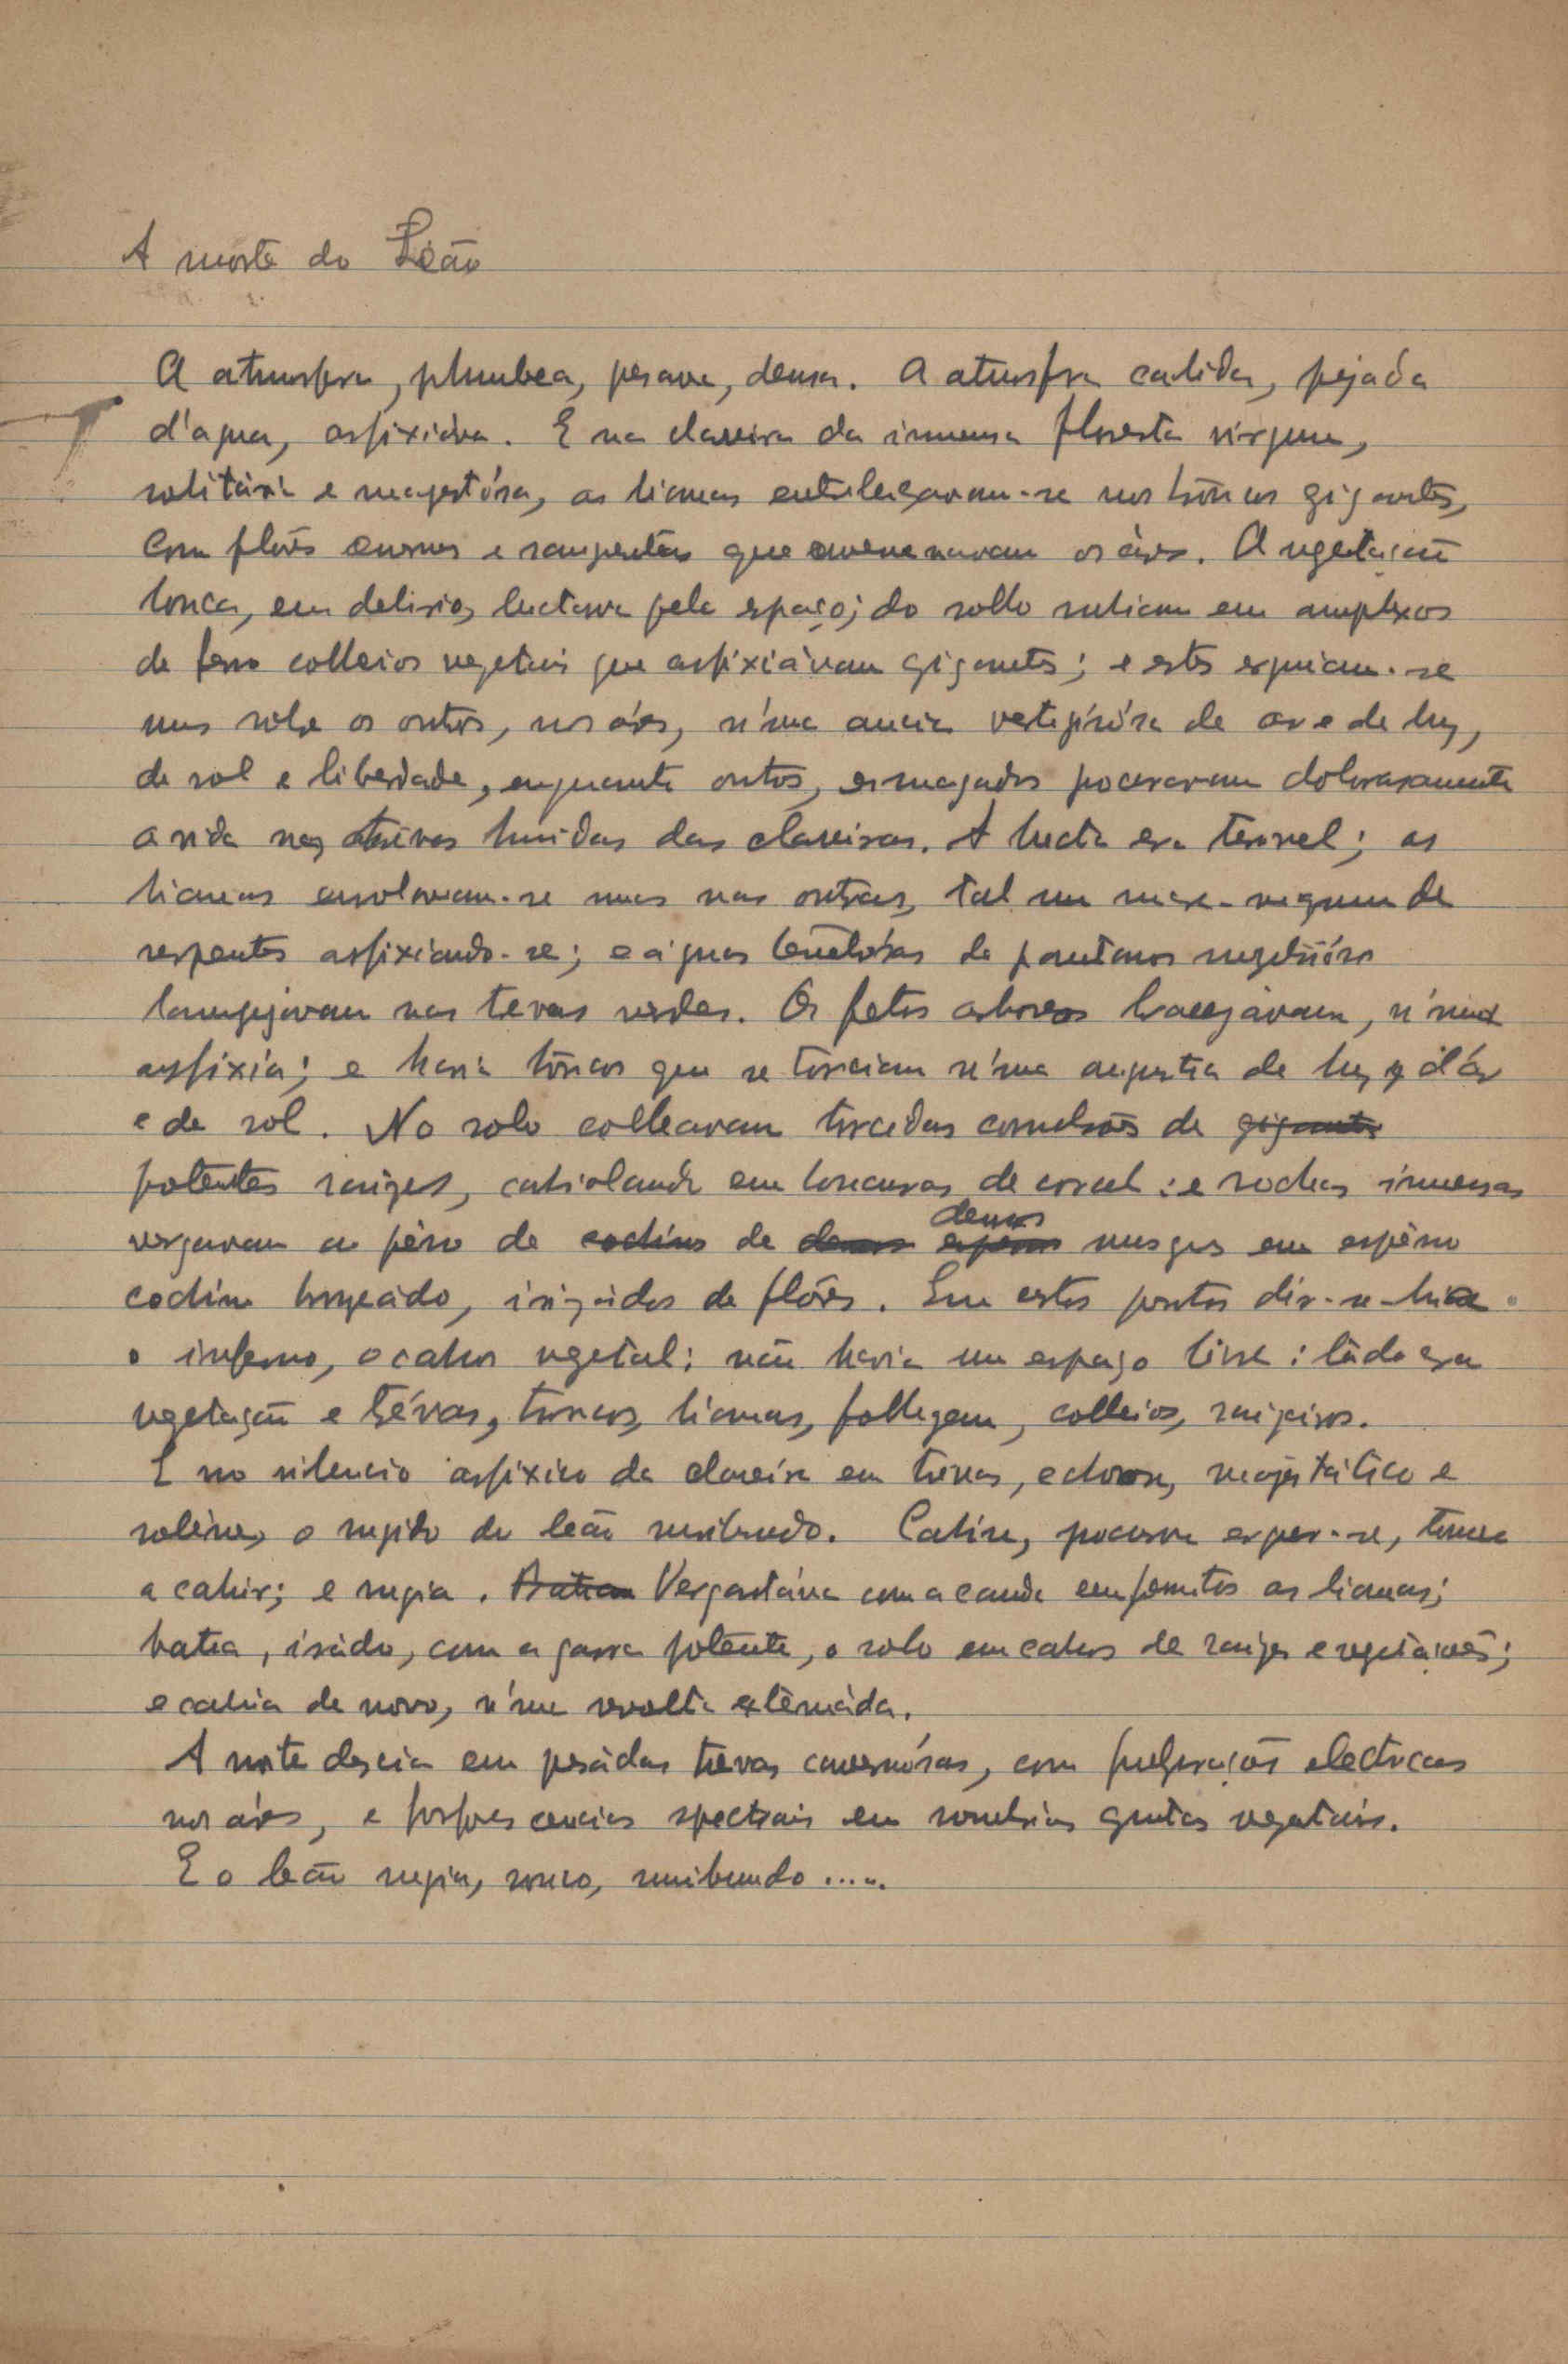 A morte do Leão
A atmosfera, plumbea, pesava, densa. A atmosfera calida, pejada
d'agua, asfixiáva. E na clareira da immensa floresta virgem,
solitária e magestósa, as lianas entrelaçavam-se nos troncos gigantes,
com flôres enormes e sangrentas que envenenavam os áres. A vegetação
louca, em delirio, luctava pelo espaço; do sollo subiam em amplexos
de ferro colleios vegetais que asfixiávam gigantes; e estes erguiam-se
uns sobre os outros, nos áres, n'uma ancia vertiginósa de ar e de luz,
de sol e liberdade, enquanto outos, esmagados procuravam dolorosamente
a vida nas trévas humidas das clareiras. A lucta era terrivel; as
lianas enrolavam-se umas nas outras, tal um mare-magnum de
serpentes asfixiando-se; e aguas tenebrósas de pantanos
lampejavam nas trevas verdes. Os fetos arboreos bracejávam, n'uma
asfixia; e havia troncos que se torciam n'uma angustia de luz, d'ár
e de sol. No solo colleavam torcidas convulsões de gigantes
potentes raizes, cabriolando em loucuras de corcel: e rochas immensas
vergavam ao pêso de cochins de densos espessos densos musgos em espêsso
cochim bronzeádo, irizádos de flôres. Em estes pontos dir-se-hia
o inferno, o cahos vegetal: não havia um espaço livre: tudo era
vegetação e trévas, troncos, lianas, folhagem, colleios,
E no silencio asfixico da clareira em trevas, echoou, magestático e
solène, o rugido do leão moribundo. Cahira, procurou erguer-se, tornou
a cahir; e rugia. Batia Vergastáva com a cauda em frémitos as lianas;
batia, irádo, com a garra potente, o solo em cahos de raizes e vegetações;
e cahia de novo, n'uma revolta extenuáda.
A noite descia em pesádas trevas cavernósas, com fulgurações electricas
nos áres, e fosforescencias spectrais em sombrias grutas vegetais.
E o leão rugia, rouco, moribundo .....